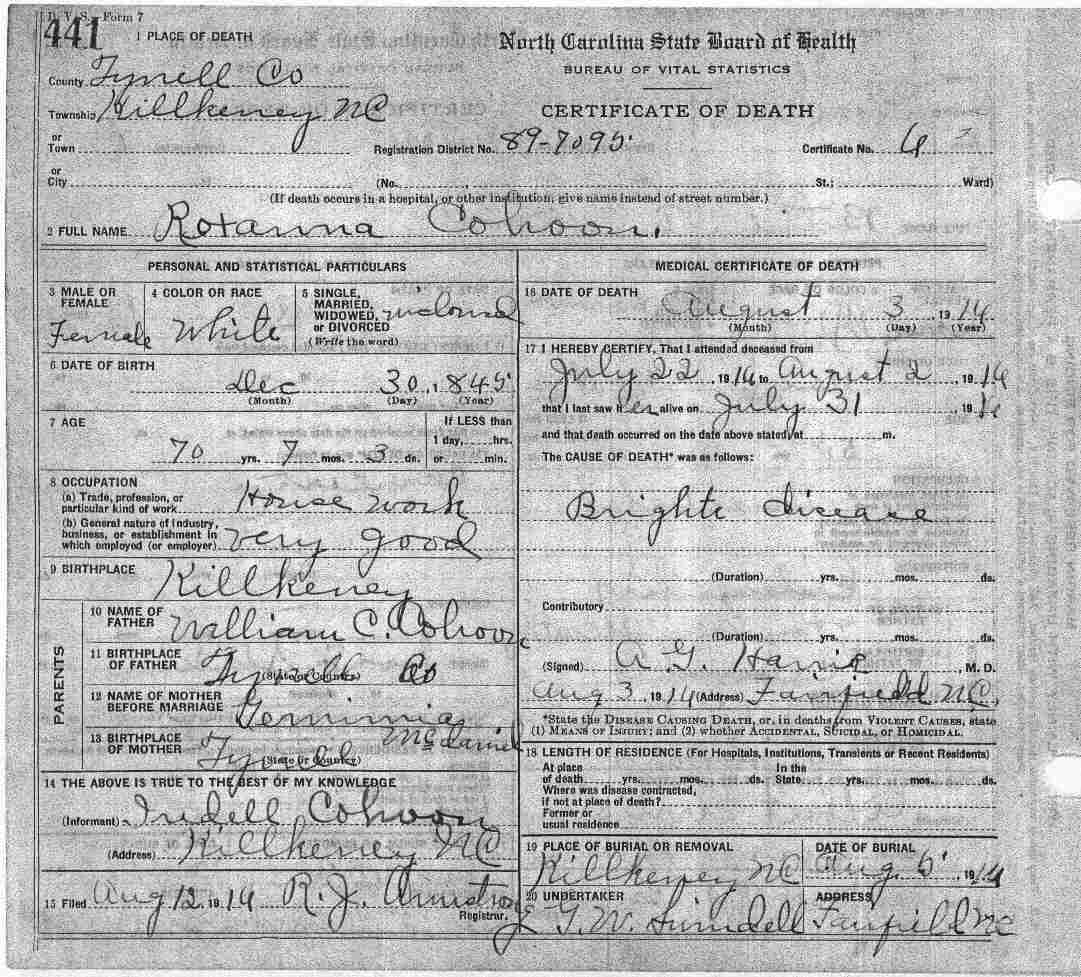 D. V. S. Form 7
441
1 PLACE OF DEATH
County Tyrrell Co
Township Killkeney NC
or
Town
or
City
North Carolina State Board of Health
BUREAU OF VITAL STATISTICS
CERTIFICATE OF DEATH
Registration District No. 89-7095 Certificate No. 6
(No. , St.; Ward)
(If death occurs in a hospital, or other institution, give name instead of street number.)
2 FULL NAME Roxanna Cohoon.
PERSONAL AND STATISTICAL PARTICULARS
3 MALE OR FEMALE Female
4 COLOR OR RACE White
5 SINGLE, MARRIED, WIDOWED, or DIVORCED
(Write the word)
6 DATE OF BIRTH
Dec 30, 1845
(Month) (Day) (Year)
7 AGE
If LESS than
1 day, hrs.
or min.
70 yrs. 7 mos. 3 ds.
8 OCCUPATION
(a) Trade, profession, or
particular kind of work House work
(b) General nature of Industry,
business, or establishment in
which employed (or employer) very good
9 BIRTHPLACE Killkeney
PARENTS
10 NAME OF
FATHER William C. Cohoon
11 BIRTHPLACE
OF FATHER Tyrrell Co
(State or Country)
12 NAME OF MOTHER
BEFORE MARRIAGE Gemimia
McDaniel
13 BIRTHPLACE
OF MOTHER Tyrrell
(State or Country)
14 THE ABOVE IS TRUE TO THE BEST OF MY KNOWLEDGE
(Informant) Iredell Cohoon
(Address) Killkeney NC
15 Filed Aug 12, 1916 R. J. Armstrong
Registrar.
MEDICAL CERTIFICATE OF DEATH
16 DATE OF DEATH
August 3, 1916
(Month) (Day) (Year)
17 I HEREBY CERTIFY, That I attended deceased from
July 22, 1916 to August 2, 1916
that I last saw her alive on July 31, 1916
and that death occurred on the date above stated, at m.
The CAUSE OF DEATH* was as follows:
Brights disease
(Duration) yrs. mos. ds.
Contributory
(Duration) yrs. mos. ds.
(Signed) A G. Harris, M. D.
Aug 3, 1916 (Address) Fairfield NC.
*State the DISEASE CAUSING DEATH, or, in deaths from VIOLENT CAUSES, state
(1) MEANS OF INJURY; and (2) whether ACCIDENTAL, SUICIDAL, or HOMICIDAL.
18 LENGTH OF RESIDENCE (For Hospitals, Institutions, Transients or Recent Residents)
At place In the
of death yrs. mos. ds. State yrs. mos. ds.
Where was disease contracted,
if not at place of death?
Former or
usual residence
19 PLACE OF BURIAL OR REMOVAL
Killkeney NC
DATE OF BURIAL
Aug. 5, 1916
20 UNDERTAKER
G. W. Swindell
ADDRESS
Fairfield NC